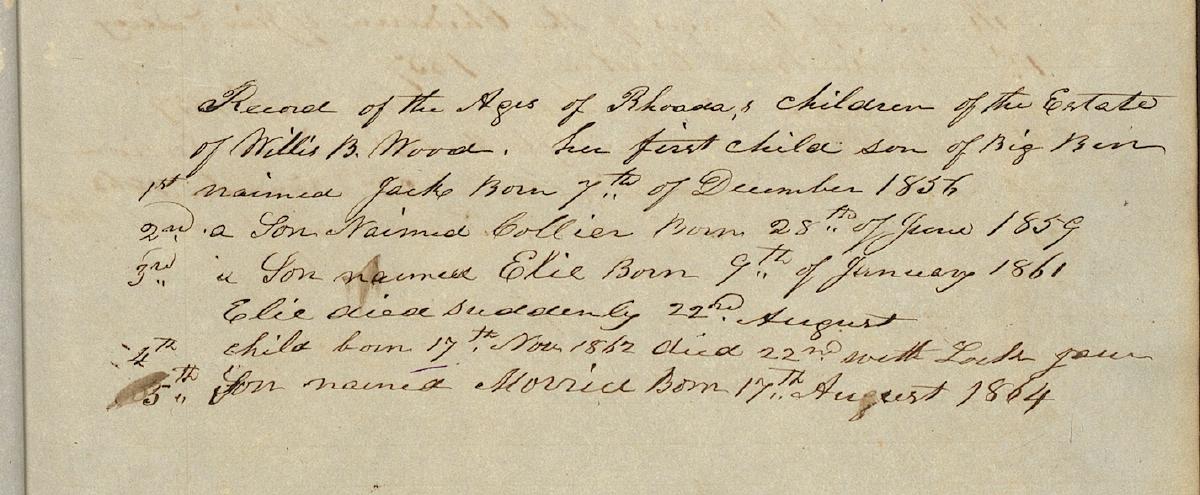 Record of the Ages of Rhoada,s children of the Estate
of Willis B. Wood. her first child son of Big Ben
1st naimed Jack Born 7th of December 1856
2nd. a Son Naimed Collier Born 28th of June 1859
3rd a Son naimed Elie Born 9th of January 1861
Elie died suddenly 22nd August
4th child born 17th Nov 1862 died 22nd with Lock jaw
5th Son named Morris Born 17th August 1864